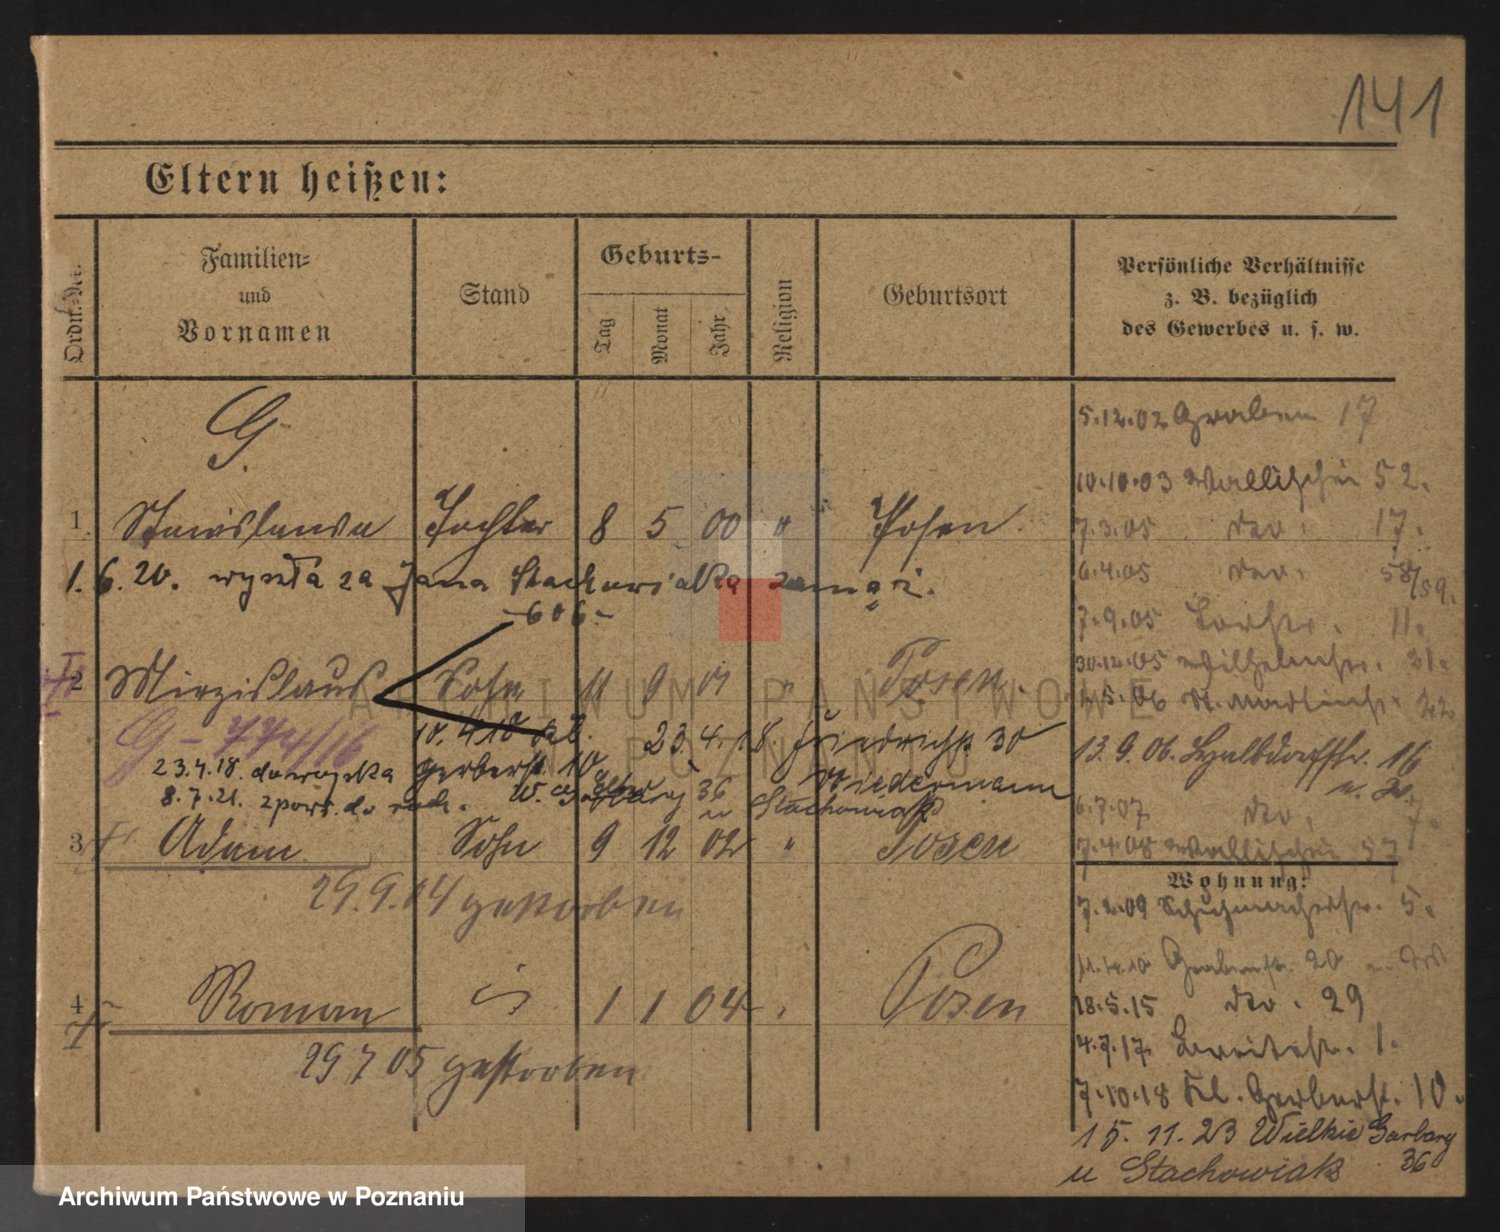 141
Eltern heißen:
Ordn.-Nr.
Familien-
und
Vornamen
Stand
Geburts-
Tag
Monat
Jahr
Religion
Geburtsort
Persönliche Verhältnisse
z. B. bezüglich
des Gewerbes u. s. w.
G.
5.12.02 Graben 17
10.10.03 Wallischei 52.
1. Stanislawa Tochter 8 5 00 " Posen
7.3.05 do. 17.
1.6.20. wyszła za Jana Stachowiaka zamąż.
6.4.05 do. 58/59.
-606-
7.9.05 11.
2 Mirzislaus Sohn 11 9 01 " Posen.
30.12.05 Wilhelmstr. 21.
1.5.06 St. Martinstr. 22
G - 774/16
10.4.18 Kl. 23.4.18 Friedrichstr. 30
Gerberstr. 10 Niedermann
13.9.06. Halbdorffstr. 16
23.4.18. do wojska
8.7.21. z pow. do rodz. W. Garbary 36
u Stachowiak
6.7.07 do. 7.
3 Adam Sohn 9 12 02 " Posen
7.4.08 Wallischei 57
29.9.04 gestorben
Wohnung:
7.2.09 Schuhmacherstr. 5.
11.4.10 Grabenstr. 20
4 Roman 1 1 04 " Posen
18.5.15 do. 29
29 7 05 gestorben
4.7.17 Breitestr. 1.
7.10.18 Kl. Gerberstr. 10.
15.11.23 Wielkie Garbary 36
u Stachowiak
ARCHIWUM PAŃSTWOWE
W POZNANIU
Archiwum Państwowe w Poznaniu